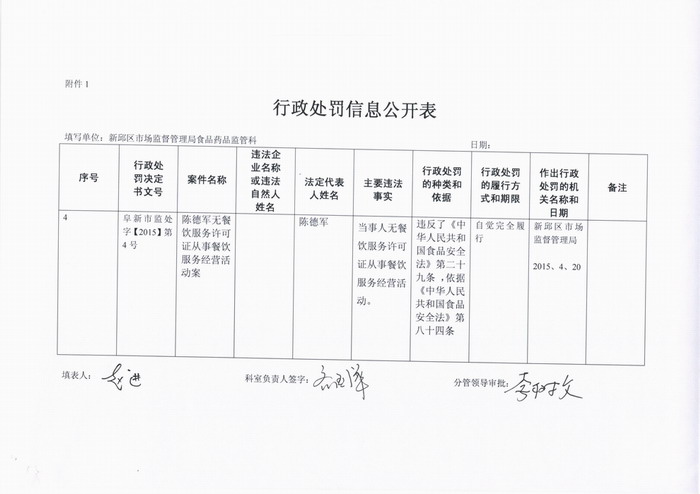 附件 1
行政处罚信息公开表
填写单位：新邱区市场监督管理局食品药品监管科 日期：
序号
行政处
罚决定
书文号
案件名称
违法企
业名称
或违法
自然人
姓名
法定代表
人姓名
主要违法
事实
行政处罚
的种类和
依据
行政处罚
的履行方
式和期限
作出行政
处罚的机
关名称和
日期
备注
4
阜新市监处
字【2015】第
4号
陈德军无餐
饮服务许可
证从事餐饮
服务经营活
动案
陈德军
当事人无餐
饮服务许可
证从事餐饮
服务经营活
动。
违反了《中
华人民共和
国食品安全
法》第二十
九条，依据
《中华人民
共和国食品
安全法》第
八十四条
自觉完全履
行
新邱区市场
监督管理局
2015、4、20
填表人： 科室负责人签字： 分管领导审批：